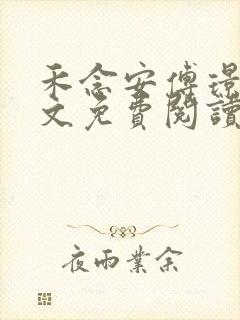 禾念安傅璟
文免費閱讀
夜雨業余